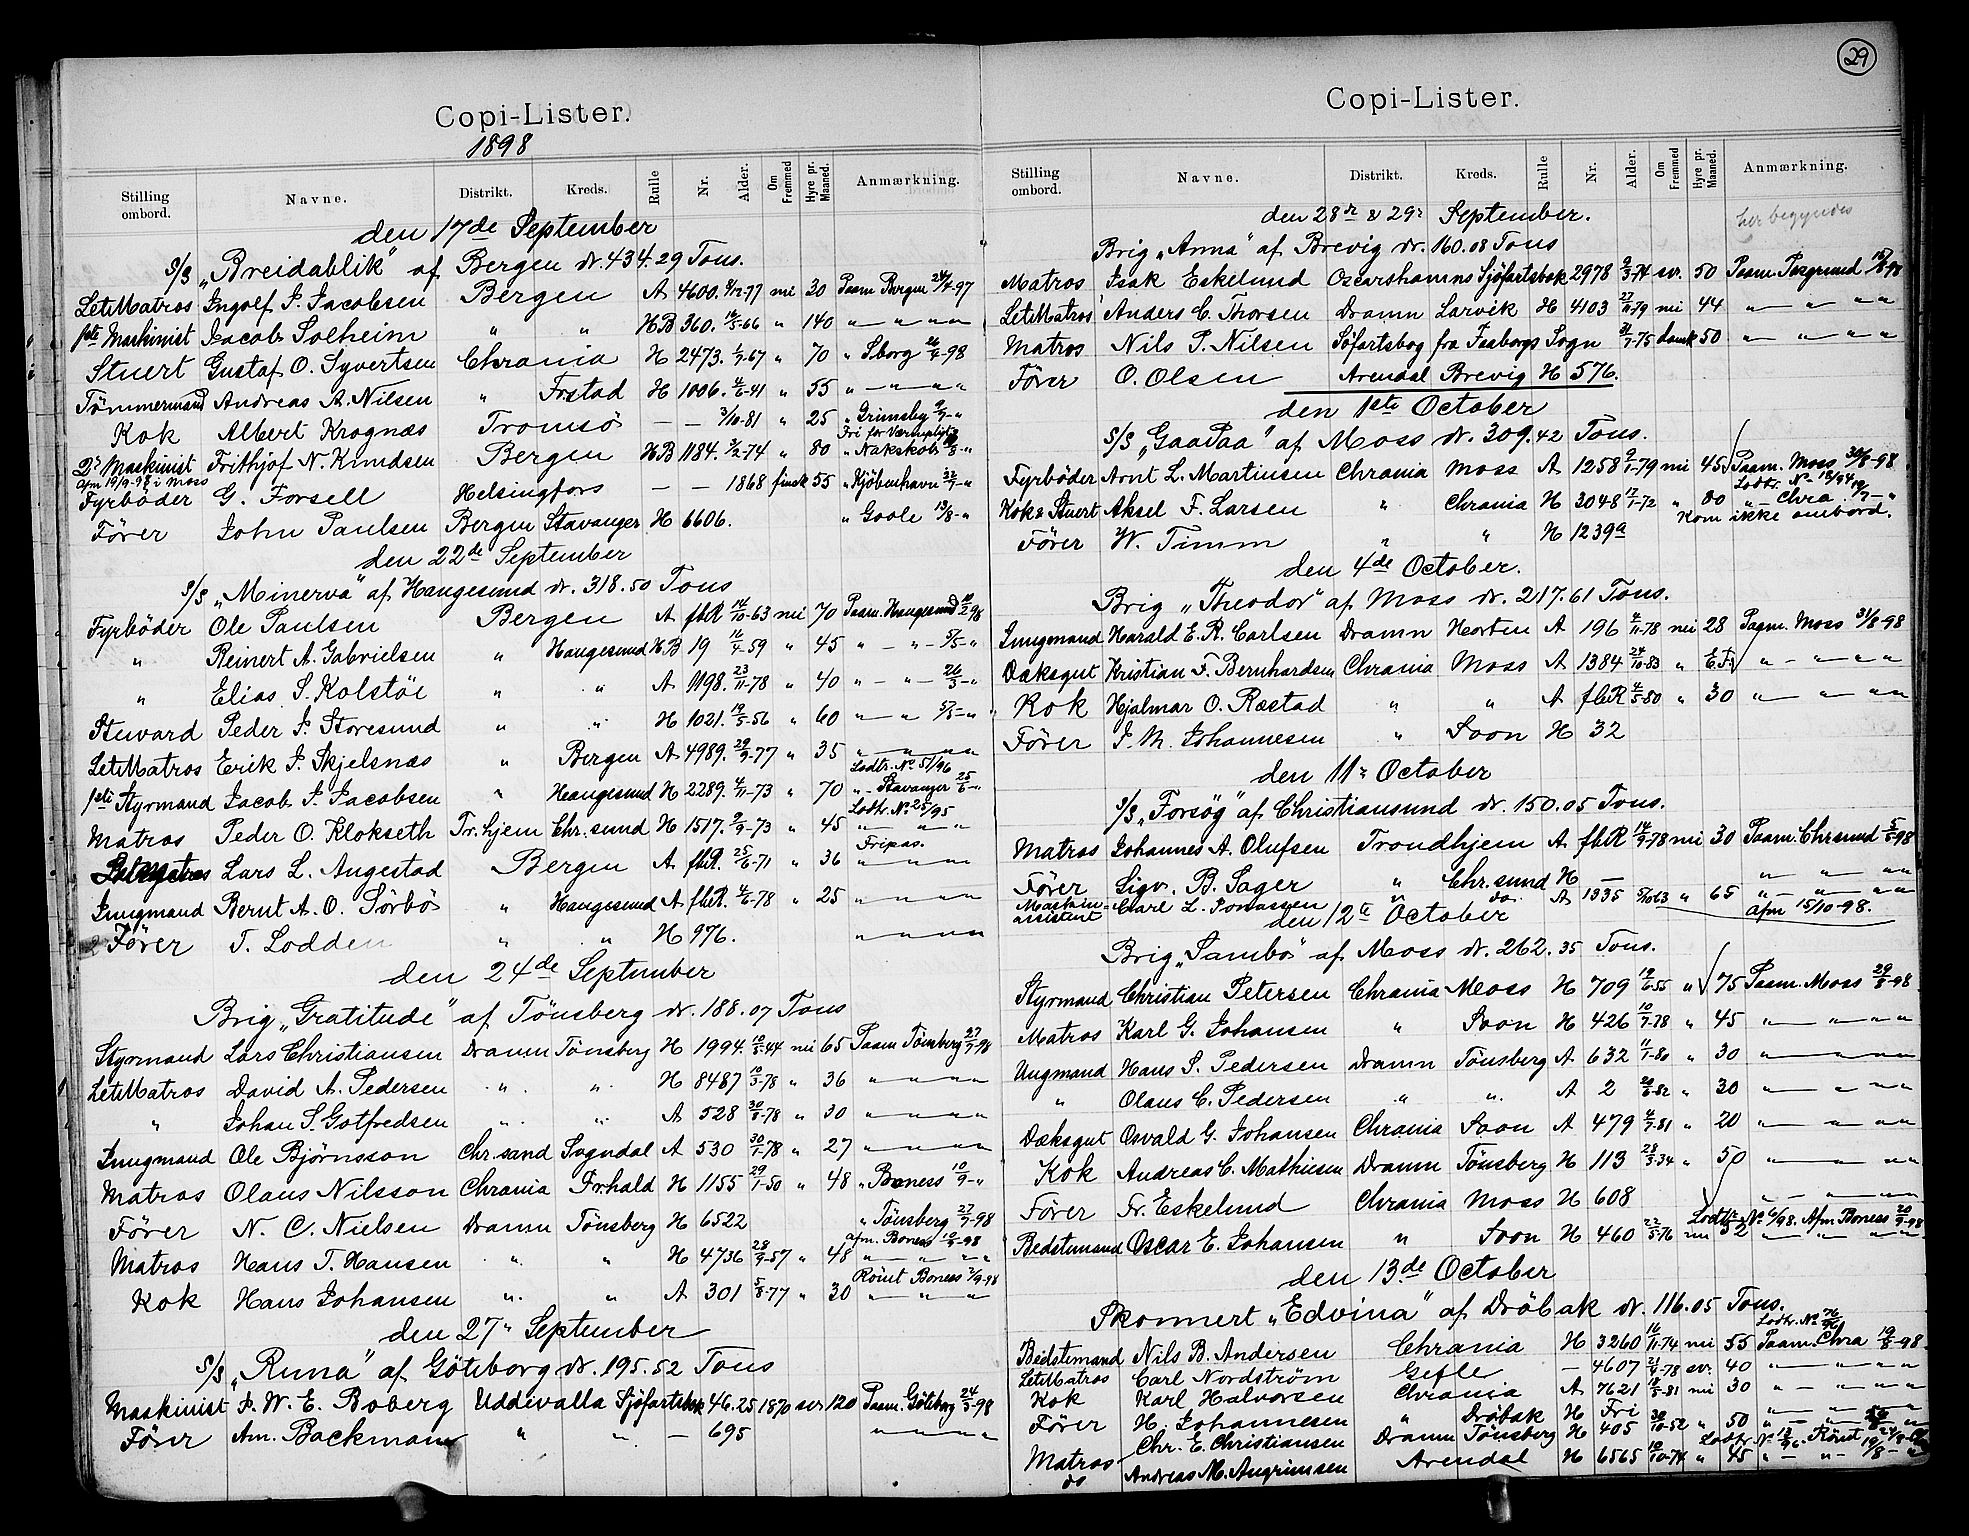 Copi-Lister.
1898
Stilling ombord. Navne. Distrikt. Kreds. Rulle Nr. Alder. Om Fremmed Hyre pr. Maaned. Anmærkning.
den 17de September
S/S „Breidablik" af Bergen dr. 434.29 Tons.
LetMatros Ingolf J. Jacobsen Bergen A 4600. 9/12-77 nei 30 Paam Bergen 24/4-97
1ste Maskinist Jacob Solheim " " HB 360. 14/5-66 " 140 " — " " "
Stuert Gustaf O. Syvertsen Chrania H 2473. 1/9-67 " 70 " Sborg 26/4-98
Tömmermand Andreas A. Nilsen " Frstad H 1006. 4/6-41 " 55 " — " " "
Kok Albert Krognæs Tromsö — — 3/10-81 " 25 " Grimsby 9/9-"
Fri for Værnepligt
2den Maskinist Frithjof N. Knudsen Bergen HB 1184. 3/2-74 " 80 " Nakskob /8-"
afm 19/9-98 i Moss
Fyrböder G. Forsell Helsingfors — — 1868 finsk 55 " Kjöbenhavn 22/7-"
Förer John Paulsen Bergen Stavanger H 6606. " Goole 13/8-"
den 22de September
S/S „Minerva" af Haugesund dr. 318.50 Tons
Fyrböder Ole Paulsen Bergen A fblR 14/10-63 nei 70 Paam. Haugesund 10/2 98
" Reinert A. Gabrielsen " Haugesund HB 19 16/4-59 " 45 " — " — 5/5-"
" Elias S. Kolstöe " " A 1198. 23/11-78 " 40 " — " — 26/3-"
Steward Peder J. Storesund " " H 1021. 19/5-56 " 60 " — " 5/5-"
LetMatros Erik J. Skjelsnæs " Bergen A 4989. 29/9-77 " 35 " — " " "
Lodtr. No. 51/96
1ste Styrmand Jacob J. Jacobsen " Haugesund H 2289. 4/11-73 " 70 " — Stavanger 25/6-"
Lodtr. No. 25/95
Matros Peder O. Klokseth Tr.hjem Chr.sund H 1517. 9/9-73 " 45 " — " "
Fripas.
Lars L. Augestad Bergen A fblR. 25/6-71 " 36 " — " " "
Jungmand Bernt A. O. Sörbö " Haugesund A fblR. 4/6-78 " 25 " — " " "
Förer T. Lodden " " H 976. " — " " "
den 24de September
Brig „Gratitude" af Tönsberg dr. 188.07 Tons
Styrmand Lars Christiansen Dramn Tönsberg H 1994. 10/5-44 nei 65 Paam Tönsberg 27/7-98
LetMatros David A. Pedersen " " H 8487 10/3-78 " 36 " — " " "
" Johan S. Gotfredsen " " A 528 30/8-78 " 30 " — " " "
Jungmand Ole Björnsson Chr.sand Sogndal A 530 30/1-78 " 27 " — " " "
Matros Olaus Nilsson Chrania Fr.hald H 1155 29/1-50 " 48 " Boness 10/9-"
Förer N. C. Nielsen Dramn Tönsberg H 6522 " Tönsberg 27/7-98
afm. Boness 10/9-98
Matros Hans T. Hansen " " H 4736 28/9-57 " 48 " — " — "
Römt Boness 7/9-98
Kok Hans Johansen " " A 301 5/8-77 " 30 " — " "
den 27de September
S/S „Runa" af Göteborg dr. 195.52 Tons
Maskinist J. W. E. Boberg Uddevalla Sjöfartsbok 46.25 1870 sv 120 Paam. Göteborg 24/5-98
Förer Am. Backman " " — 695 " — " " "
29
Copi-Lister.
Stilling ombord. Navne. Distrikt. Kreds. Rulle Nr. Alder. Om Fremmed Hyre pr. Maaned. Anmærkning.
her begyndes
den 28de & 29de September.
Brig „Anna" af Brevig dr. 160.08 Tons
Matros Isak Eskelund Oscarshamns Sjöfartsbok 2978 9/3-74 sv. 50 Paam. Porsgrund 15/8-98
LetMatros Anders C. Thorsen Dramn Larvik H 4103 27/11-79 nei 44 " — " " "
Matros Nils P. Nilsen Söfartsbog fra Faaborgs Sogn 31/7-75 dansk 50 " — " " "
Förer O. Olsen Arendal Brevig H 576.
den 1ste October
S/S „GaaPaa" af Moss dr. 309.42 Tons.
Fyrböder Arnt L. Martinsen Chrania Moss A 1258 9/1-79 nei 45 Paam. Moss 30/8-98
Lodtr. No 18/94
Kok & Stuert Aksel F. Larsen " Chrania H 3048 17/1-72 " 80 " Chra 19/7-"
Kom ikke ombord.
Förer W. Timm " " H 1239a
den 4de October.
Brig „Theodor" af Moss dr. 217.61 Tons.
Jungmand Harald E. R. Carlsen Dramn Horten A 196 4/11-78 nei 28 Paam. Moss 31/8-98
Dæksgut Kristian F. Bernhardsen Chrania Moss A 1384 24/10-83 " E.F. " — " " "
Kok Hjalmar O. Ræstad " " A fblR 4/5-80 " 30 " — " " "
Förer J. M. Johannesen " Soon H 32
den 11te October
S/S „Forsög" af Christiansund dr. 150.05 Tons.
Matros Johannes A. Olufsen Trondhjem A fblR 14/9-78 nei 30 Paam. Chrsund 5/5-98
Förer Sigv. B. Sager " Chr.sund H — " — " " "
Maskinassistent Carl L. Jonassen " do. A 1335 5/10 63 " 65 " — " — " "
afm 15/10-98.
den 12te October
Brig „Sambo" af Moss dr. 262.35 Tons.
Styrmand Christian Petersen Chrania Moss H 709 19/6-55 " 75 Paam. Moss 29/8-98
Matros Karl G. Johansen " Soon H 426 10/7-78 " 45 " — " " "
Ungmand Hans S. Pedersen Dramn Tönsberg A 632 11/1-80 " 30 " — " " "
" Olaus C. Pedersen " " A 2 20/6-82 " 30 " — " " "
Dæksgut Osvald G. Johansen Chrania Soon A 479 4/7-81 " 20 " — " " "
Kok Andreas C. Mathiesen Dramn Tönsberg H 113 28/3-34 " 50 " — " " "
Förer Fr. Eskelund Chrania Moss H 608 " — " " "
Lodtr. No 6/98. Afm. Boness 20/9-98
Bedstemand Oscar E. Johansen " Soon H 460 22/5-76 nei 52 " — " " "
den 13de October
Skonnert „Edvina" af Dröbak dr. 116.05 Tons.
Lodtr. No 76/96
Bedstemand Nils B. Andersen Chrania H 3260 16/11-74 nei 55 Paam. Chra 19/8-98
LetMatros Carl Nordström Gefle — 4607 21/4-78 sv. 40 " — " " "
Kok Karl Halvorsen Chrania A 7621 18/5-81 nei 30 " — " " "
Förer H. Johannesen " Dröbak H Fri " — " " "
Chr. E. Christiansen Dramn Tönsberg H 405 30/10-52 " 50 " — " "
Lodtr. No 13/96. Römt
Matros Andreas M. Angrimsen Arendal H 6565 10/10-74 " 45 " — " — 19/8-"
do